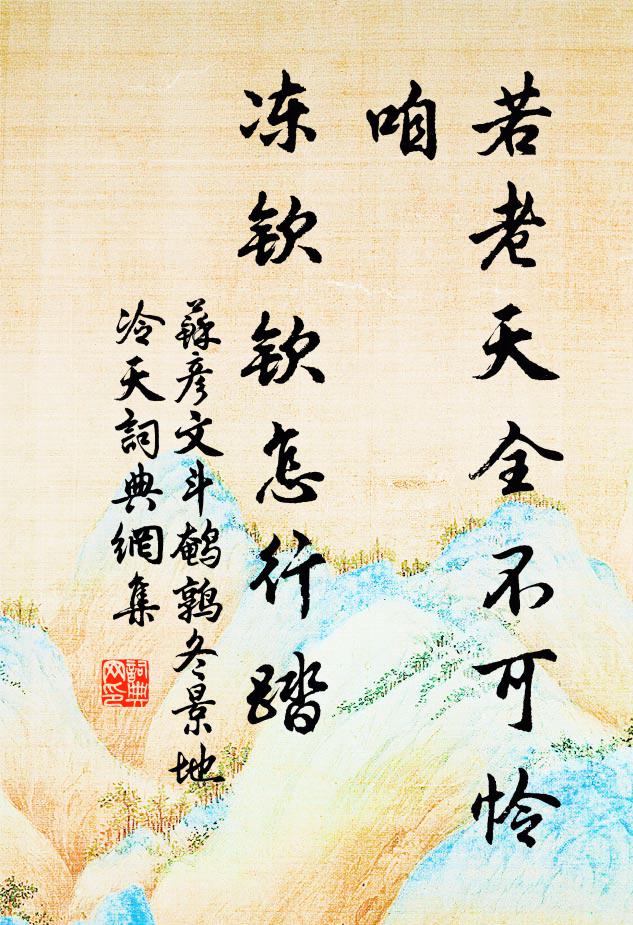 若老天全不可怜
咱
冻钦钦怎行踏
蘇彦文斗鹌鹑冬景地
冷天詞典網集
詞典
网印